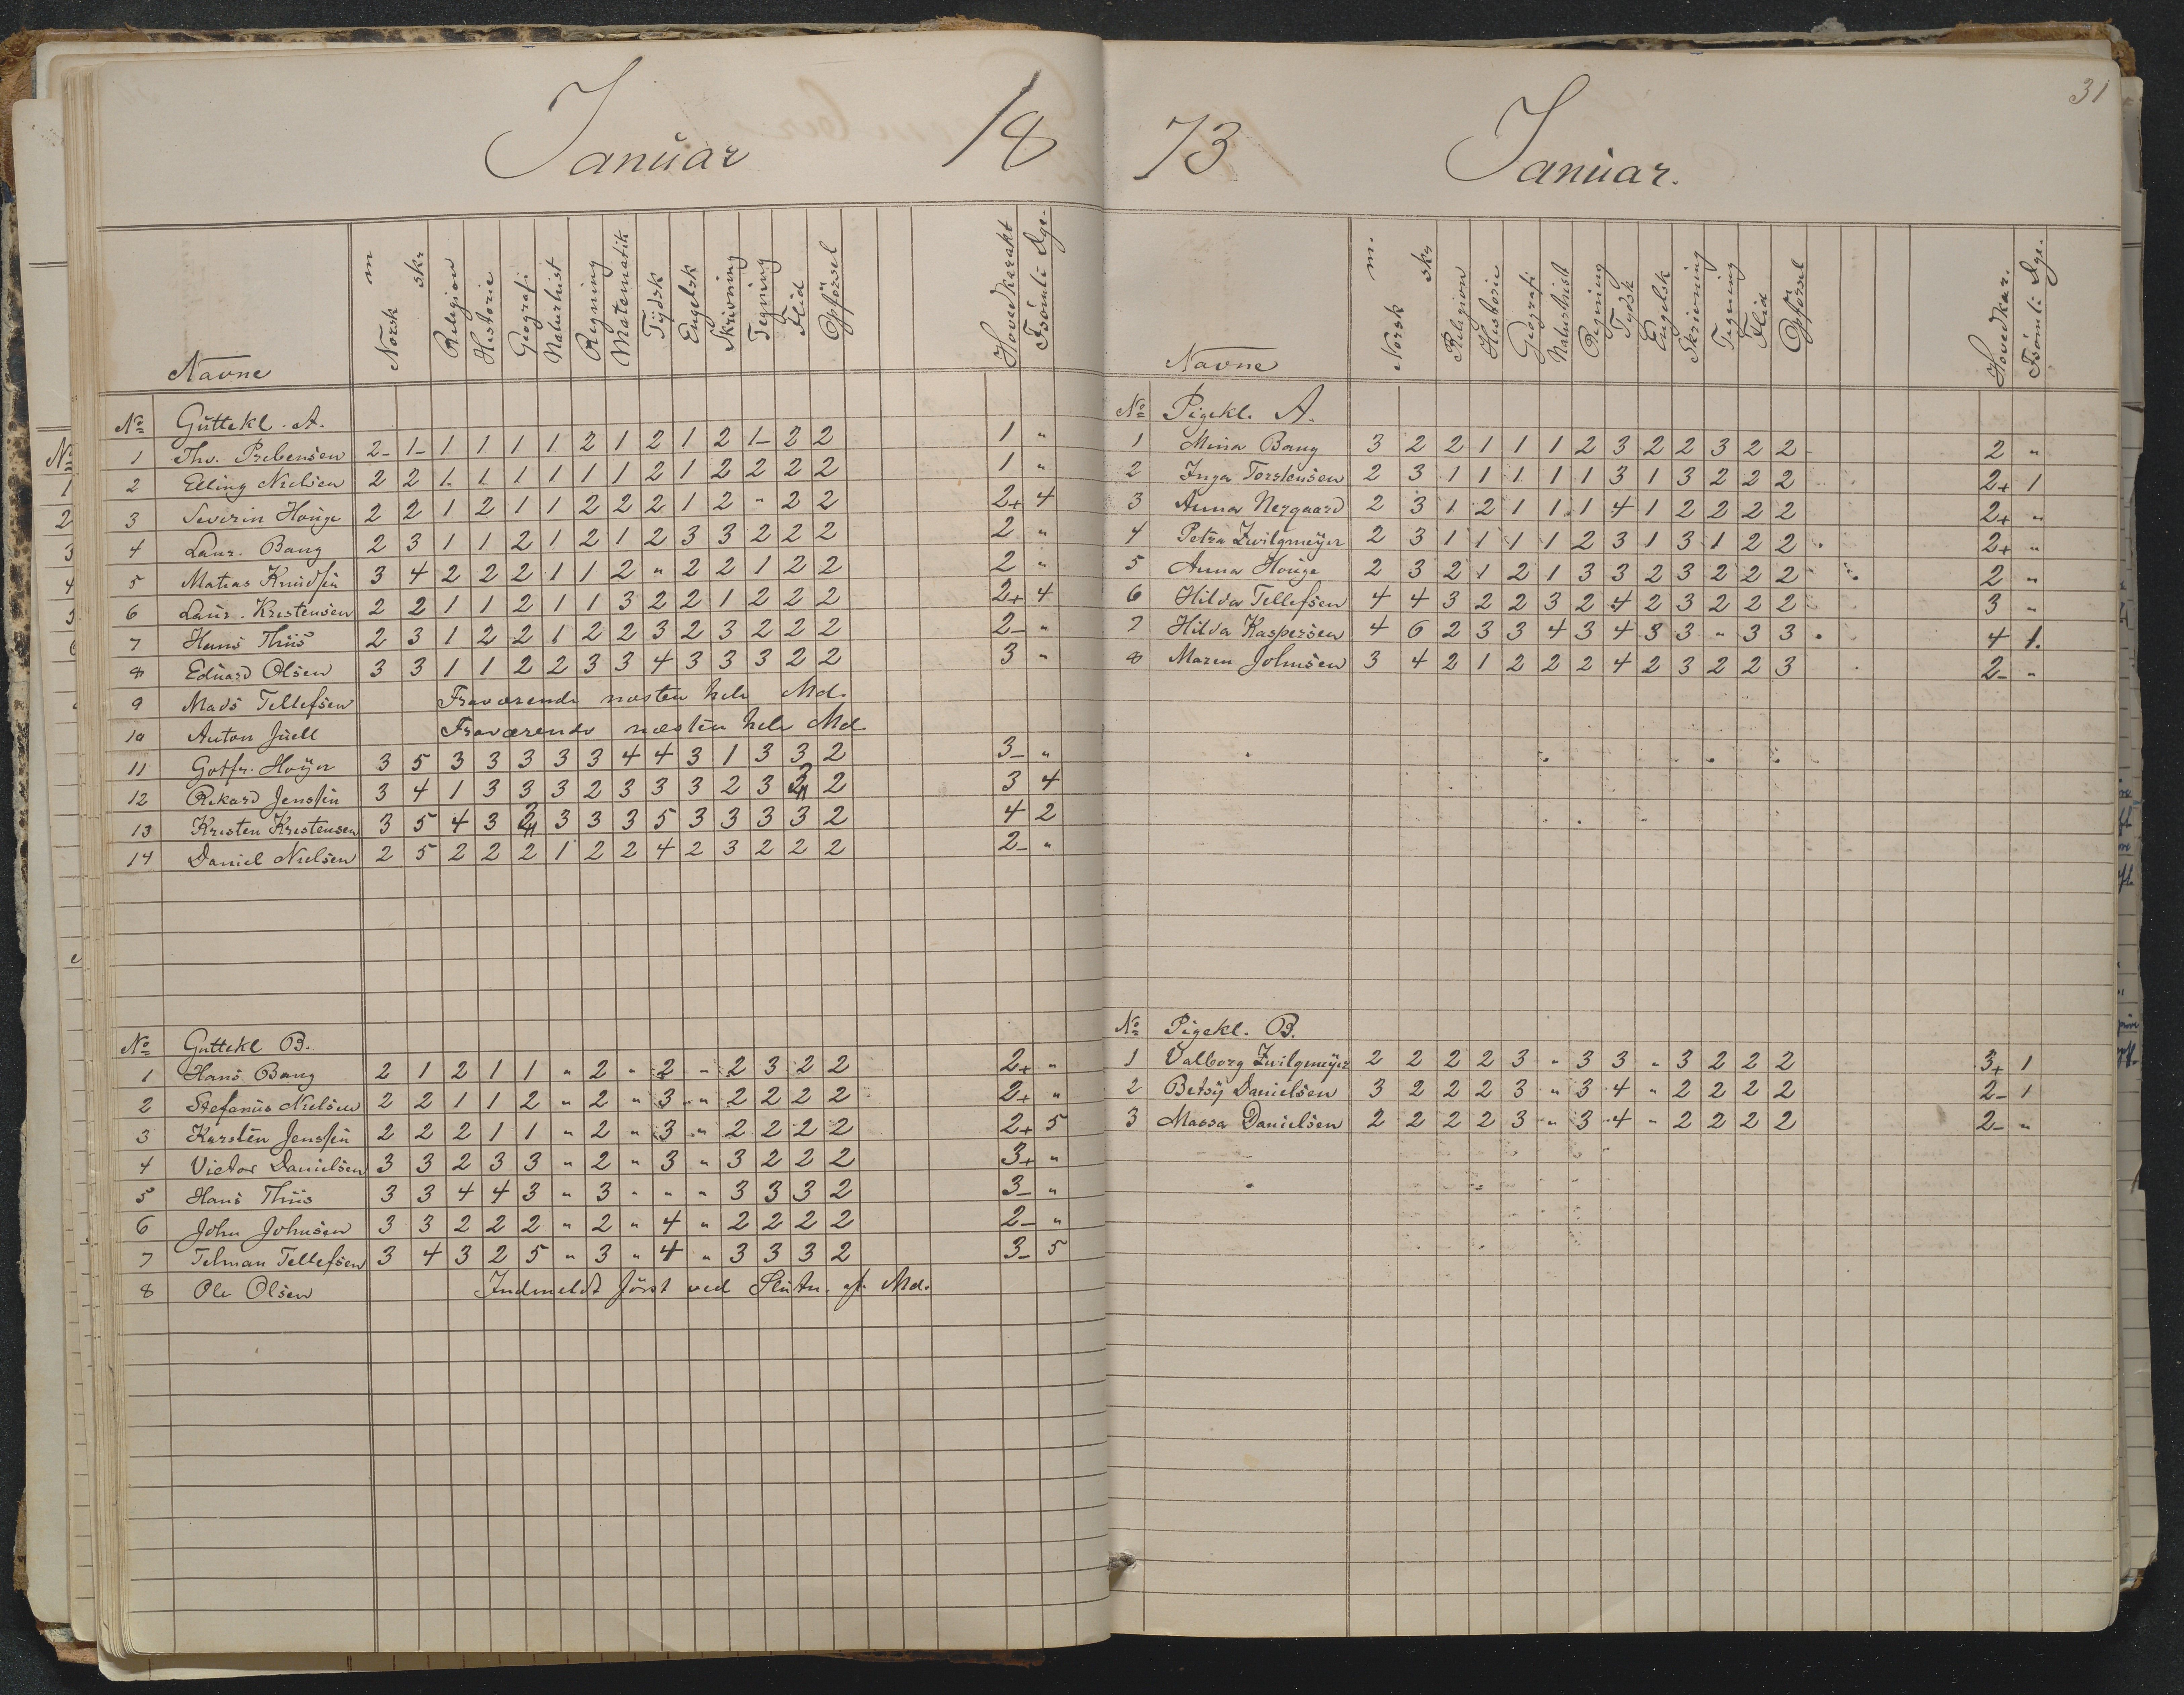 Januar 18
Navne Norsk m skr Religion Historie Geografi Naturhist Regning Matematik Tydsk Engelsk Skrivning Tegning Flid Opførsel Hovedkarakt Forsömte Dge.
No Guttekl. A.
1 Thv. Prebensen 2- 1- 1 1 1 1 2 1 2 1 2 1- 2 2 1 "
2 Elling Nielsen 2 2 1 1 1 1 1 1 2 1 2 2 2 2 1 "
3 Severin Houge 2 2 1 2 1 1 2 2 2 1 2 " 2 2 2+ 4
4 Laur. Bang 2 3 1 1 2 1 2 1 2 3 3 2 2 2 2 "
5 Matias Knudsen 3 4 2 2 2 1 1 2 " 2 2 1 2 2 2 "
6 Laur. Kristensen 2 2 1 1 2 1 1 3 2 2 1 2 2 2 2+ 4
7 Hans Thiis 2 3 1 2 2 1 2 2 3 2 3 2 2 2 2- "
8 Eduard Olsen 3 3 1 1 2 2 3 3 4 3 3 3 2 2 3 "
9 Mads Tellefsen Fraværende næsten hele Md.
10 Anton Juell Fraværende næsten hele Md.
11 Gotfr. Høyer 3 5 3 3 3 3 3 4 4 3 1 3 3 2 3- "
12 Rikard Jenssen 3 4 1 3 3 3 2 3 3 3 2 3 2 2 3 4
13 Kristen Kristensen 3 5 4 3 3 3 3 5 3 3 3 3 2 4 2
14 Daniel Nielsen 2 5 2 2 2 1 2 2 4 2 3 2 2 2 2- "
No Guttekl B.
1 Hans Bang 2 1 2 1 1 " 2 " 2 " 2 3 2 2 2+ "
2 Stefanus Nielsen 2 2 1 1 2 " 2 " 3 " 2 2 2 2 2+ "
3 Karsten Jenssen 2 2 2 1 1 " 2 " 3 " 2 2 2 2 2+ 5
4 Victor Danielsen 3 3 2 3 3 " 2 " 3 " 3 2 2 2 3+ "
5 Hans Thiis 3 3 4 4 3 " 3 " " " 3 3 3 2 3- "
6 John Johnsen 3 3 2 2 2 " 2 " 4 " 2 2 2 2 2- "
7 Telman Tellefsen 3 4 3 2 5 " 3 " 4 " 3 3 3 2 3- 5
8 Ole Olsen Indmeldt först ved Slutn. af Md.
31
73 Januar.
Navne Norsk m. skr Religion Historie Geografi Naturhist Regning Tydsk Engelsk Skrivning Tegning Flid Opførsel Hovedkar. Forsömte Dge.
No Pigekl. A.
1 Mina Bang 3 2 2 1 1 1 2 3 2 2 3 2 2 2 "
2 Inga Torstensen 2 3 1 1 1 1 1 3 1 3 2 2 2 2+ 1
3 Anna Nergaard 2 3 1 2 1 1 1 4 1 2 2 2 2 2+ "
4 Petra Zwilgmeÿer 2 3 1 1 1 1 2 3 1 3 1 2 2 2+ "
5 Anna Houge 2 3 2 1 2 1 3 3 2 3 2 2 2 2 "
6 Hilda Tellefsen 4 4 3 2 2 3 2 4 2 3 2 2 2 3 "
7 Hilda Kaspersen 4 6 2 3 3 4 3 4 3 3 " 3 3 4 1.
8 Maren Johnsen 3 4 2 1 2 2 2 4 2 3 2 2 3 2- "
No Pigekl. B.
1 Valborg Zwilgmeÿer 2 2 2 2 3 " 3 3 " 3 2 2 2 3+ 1
2 Betsÿ Danielsen 3 2 2 2 3 " 3 4 " 2 2 2 2 2- 1
3 Massa Danielsen 2 2 2 2 3 " 3 4 " 2 2 2 2 2- "